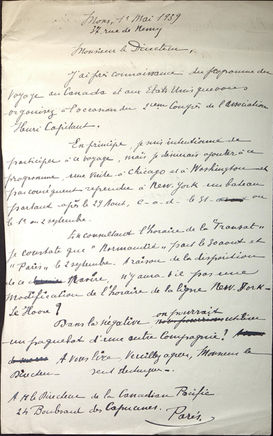 Mons, 1er Mai 1939
37, rue de Nimy
Monsieur le Directeur,
J'ai pris connaissance du programme du
voyage au Canada et aux Etats Unis que vous
organisez à l'occasion du 2ème Congrès de l'Association
Henri Capitant.
En principe, je suis intentionné de
participer à ce voyage, mais je désirerais ajouter à ce
programme, une visite à Chicago et à Washington et
par conséquent reprendre à New York un bateau
partant après le 29 Août, c-à-d. le 31 ou
le 1 ou 2 septembre.
En consultant l'horaire de la "Transat"
je constate que "Normandie" part le 30 août et
"Paris" le 2 septembre. A raison de la disposition
de ce navire, n'y aura-t-il pas une
modification de l'horaire de la ligne New York-
Le Havre?
Dans la négative on pourrait utiliser
un paquebot d'une autre Compagnie?
A vous lire, Veuillez agréer, Monsieur le
Directeur
A M le Directeur de la Canadian Pacific
24 Boulevard des Capucines.
Paris